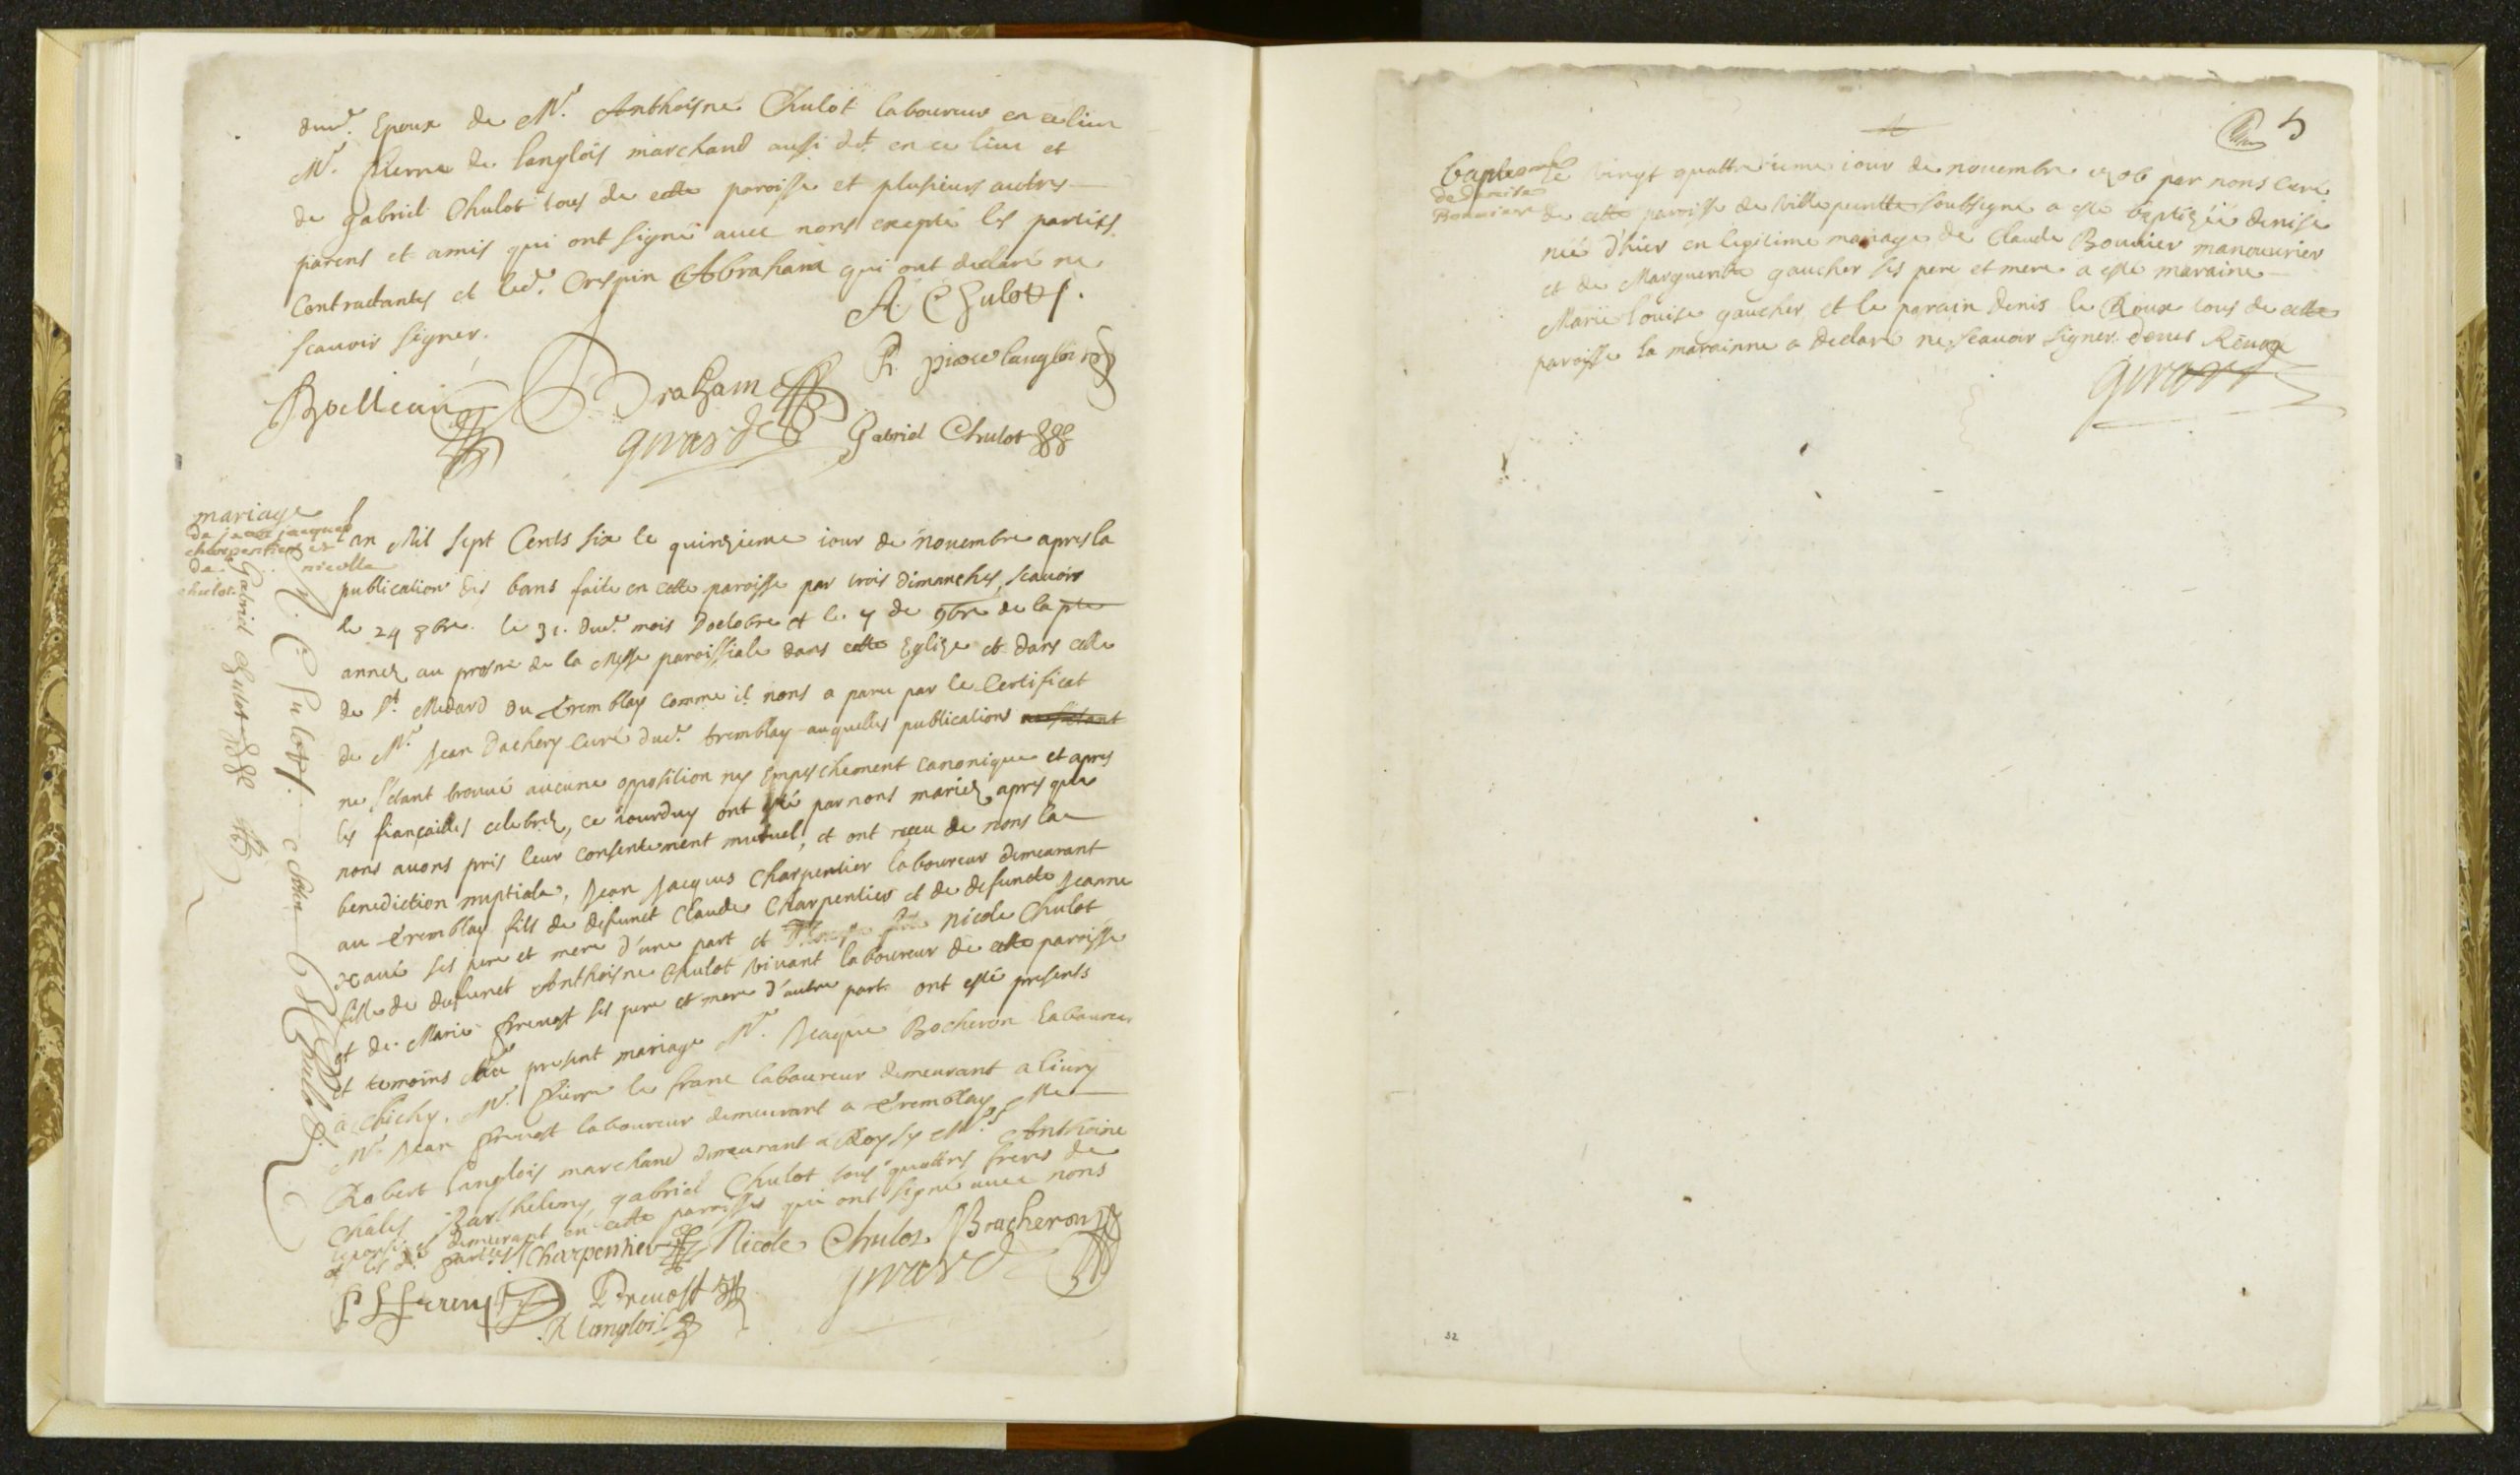 dud. Epoux de Mr. Anthoisne Chulot laboureur en ce lieu
Mr. Pierre de langlois marchand aussi dt. en ce lieu et
de gabriel Chulot tous de cette paroisse et plusieurs autres
parens et amis qui ont signé avec nous excepté les parties
contractantes et led. Crespin Abraham qui ont declaré ne
scavoir signer.
A. Chulot.
R. piere langlois
Abraham
girard
Gabriel Chulot
mariage
de jean jacques
charpentier et
de nicolle
chulot
Lan Mil sept Cents six le quinzieme iour de novembre apres la
publication des bans faite en cette paroisse par trois dimanches, scavoir
le 24 8bre. le 31. dud. mois doctobre et le 7 de 9bre de la pte
année au prosne de la Messe paroissiale dans cette Eglize et dans celle
de St. Medard du Tremblay comme il nous a paru par le Certificat
de Mr. Jean Dachery curé dud. tremblay auquelles publications
ne sétant trouvé aucune opposition ny Empeschement canonique et apres
les fiançailles celebréz, ce iourduy ont esté par nous mariéz apres que
nous avons pris leur consentement mutuel, et ont receu de nous la
benediction nuptiale, Jean Jacques Charpentier laboureur demeurant
au Tremblay fils de defunct Claude Charpentier et de defuncte Jeanne
ses pere et mere d'une part et Nicole Chulot
fille de defunct Anthoisne Chulot vivant laboureur de cette paroisse
et de Marie Prevost ses pere et mere d'autre part. ont esté presents
et temoins dud. present mariage Mr. Jeaque Bocheron Laboureur
à Clichy. Mr. Pierre le franc laboureur demeurant a livry
Mr. Jean Prevost laboureur demeurant a Tremblay Me
Robert Langlois marchand demeurant à Roysy Mrs. Anthoine
Châles Barthelemy, gabriel Chulot tous quattres freres de
demeurant en cette paroisse qui ont signé avec nous
et les d. parties
Charpentier Nicole Chulot Boucheron
Prevost
girard
R Langlois
Gabriel Chulot
A. Chulot.
B Chulot
5
Baptesme
de Denise
Bouvier
Le vingt quattrieme iour de novembre 1706 par nous Curé
de cette paroisse de Villepeintte soubsigné a esté baptizée denise
née d'hier en legitime mariage de Claude Bouvier manouvrier
et de Margueritte gaucher ses pere et mere a esté maraine
Marie Louise gaucher et le parain Denis le Roux tous de cette
paroisse la marainne a declaré ne scavoir signer.
girard
32